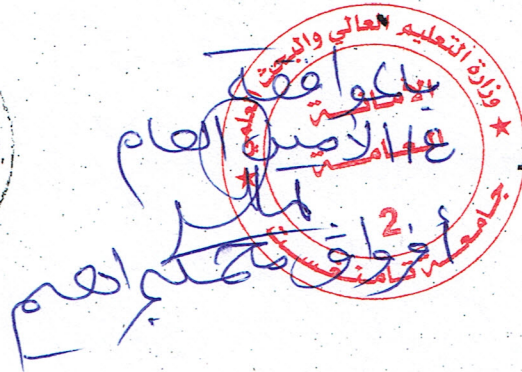 وزارة التعليم العالي والبحث العلمي
الأمانة
العامة
2
جامعة تامنغست
بالموافقة
ع/ الأمين العام